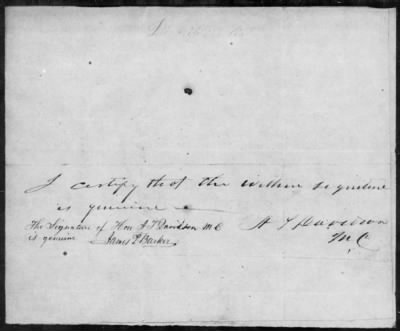 I certify that the within signature
is genuine
A T Davidson
M C
The Signature of Hon A T Davidson M C
is genuine James P Barker